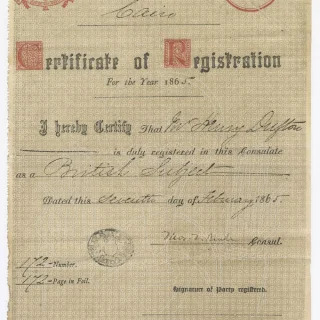 Cairo
Certificate of Registration
For the Year 1865
I hereby Certify That Mr Henry Dufton
is duly registered in this Consulate
as a British Subject
Dated this Seventh day of February 1865.
Consul.
172-Number.
172-Page in Foil.
Signature of Party registered.